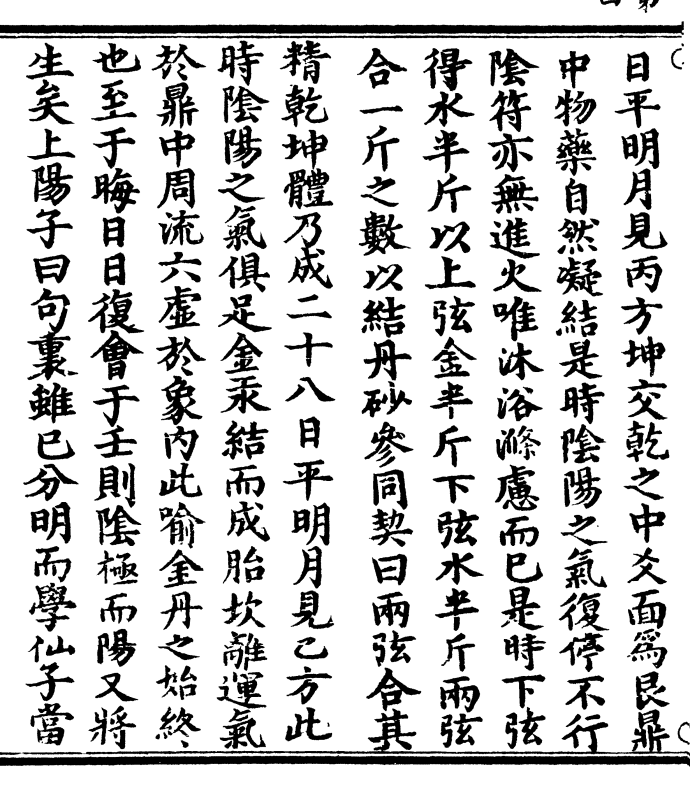 日平明月見丙方坤交乾之中爻而為艮鼎
中物藥自然凝結是時陰陽之氣復停不行
陰符亦無進火唯沐浴滌慮而已是時下弦
得水半斤以上弦金半斤下弦水半斤兩弦
合一斤之數以結丹砂參同契曰兩弦合其
精乾坤體乃成二十八日平明月見乙方此
時陰陽之氣俱足金汞結而成胎坎離運氣
於鼎中周流六虛於象內此喻金丹之始終
也至于晦日日復會于壬則陰極而陽又將
生矣上陽子曰句裏雖已分明而學仙子當